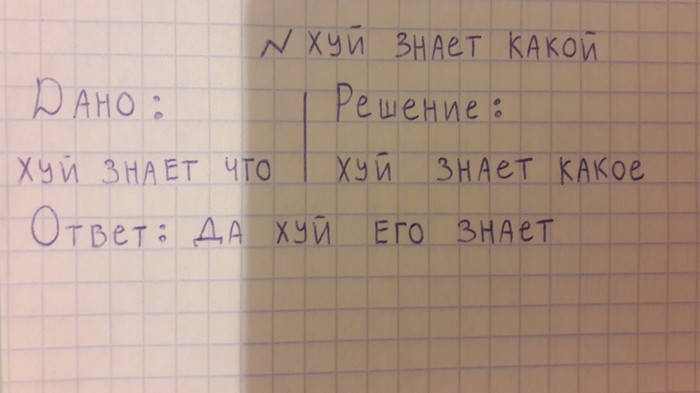 N ХУЙ ЗНАЕТ КАКОЙ
ДАНО: | РЕШЕНИЕ:
ХУЙ ЗНАЕТ ЧТО | ХУЙ ЗНАЕТ КАКОЕ
ОТВЕТ: ДА ХУЙ ЕГО ЗНАЕТ